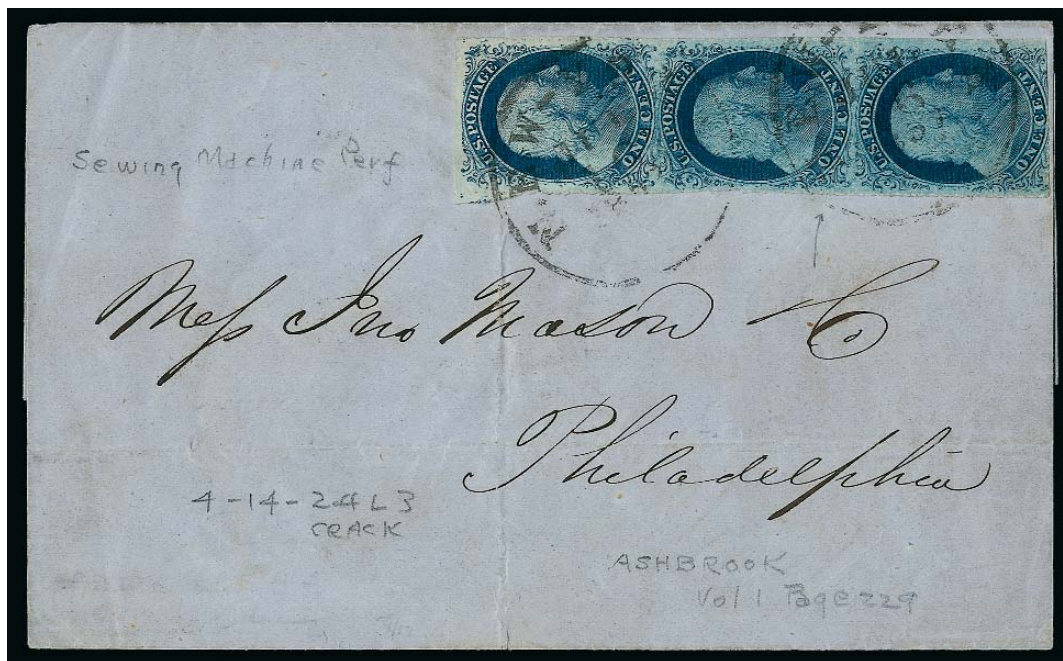 U.S.POSTAGE ONE CENT
U.S.POSTAGE ONE CENT
U.S.POSTAGE ONE CENT
NEW
Sewing Machine Perf
Mess Jno Mason & Co
Philadelphia
4-14-24L3
CRACK
ASHBROOK
Vol 1 Page 229